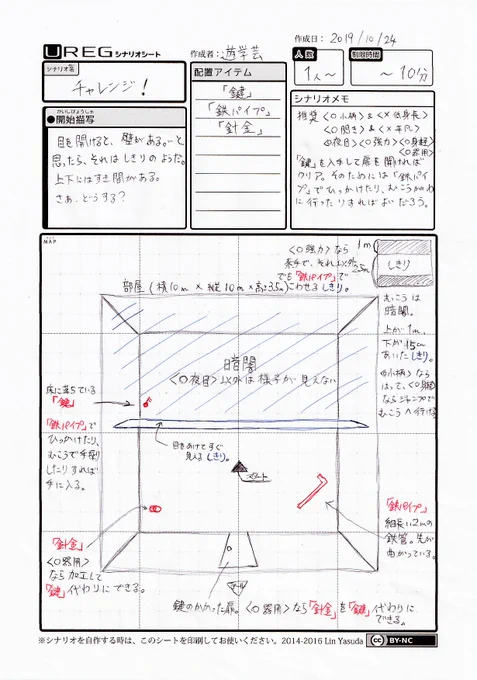 UREG シナリオシート
作成者：遊学芸
作成日：2019/10/24
シナリオ名
チャレンジ！
かいしびょうしゃ
●開始描写
目を開けると、壁がある。…と
思ったら、それはしきりのようだ。
上下にはすき間がある。
さぁ、どうする？
配置アイテム
「鍵」
「鉄パイプ」
「針金」
人数
1人～
制限時間
～10分
シナリオメモ
推奨 〈○小柄〉&〈×低身長〉
〈○夜目〉〈○強力〉〈○身軽〉
〈○器用〉
「鍵」を入手して扉を開ければ
クリア。そのためには「鉄パイ
プ」でひっかけたり、むこうがわ
に行ったりすればよいだろう。
MAP
〈○強力〉なら
素手で、それ以外
でも「鉄パイプ」で
こわせるしきり。
1m
しきり
部屋（横10m×縦10m×高3.5m）
むこうは
暗闇。
上が1m、
下が15cm
あいたしきり。
〈○小柄〉なら
はって、〈○身軽〉
ならジャンプで
むこうへ行ける
暗闇
〈○夜目〉以外は様子が見えない
床に落ちている
「鍵」
「鉄パイプ」で
ひっかけたり、
むこうで手探り
したりすれば
手に入る。
目をあけてすぐ
見えるしきり。
スタート
「鉄パイプ」
細長い2mの
鉄管。先が
曲がっている。
「針金」
〈○器用〉
なら加工して
「鍵」代わりにできる。
ゴール
鍵のかかった扉。〈○器用〉なら「針金」を「鍵」代わりに
できる。
※シナリオを自作する時は、このシートを印刷してお使いください。2014-2016 Lin Yasuda
CC BY-NC